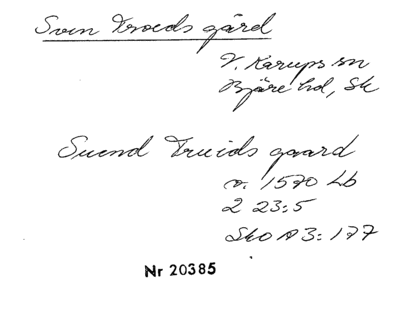 Sven Troeds gård
V. Karups sn
Bjäre hd, Sk
Suend Truids gaard
o. 1570 Lb
2 23:5
SkO A 3: 177
Nr 20385